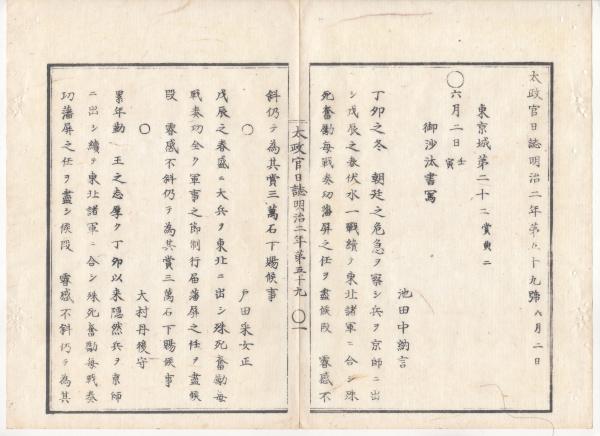 太政官日誌明治二年第五十九號 六月二日
東京城第二十二 賞典二
○六月二日 壬寅
御沙汰書寫
池田中納言
丁卯之冬 朝廷之危急ヲ察シ兵ヲ京師ニ出
シ戊辰之春伏水一戰續テ東北諸軍ニ合シ殊
死奮勵每戰奏功藩屏之任ヲ盡候段 叡感不
太政官日誌明治二年第五十九 ○一
斜仍テ為其賞三萬石下賜候事
○ 戸田采女正
戊辰之春盛ニ大兵ヲ東北ニ出シ殊死奮勵每
戰奏功全ク軍事之節制行届藩屏之任ヲ盡候
段 叡感不斜仍テ為其賞三萬石下賜候事
○ 大村丹後守
累年勤 王之志厚ク丁卯以来隠然兵ヲ京師
ニ出シ續テ東北諸軍ニ合シ殊死奮勵每戰奏
功藩屏之任ヲ盡シ候段 叡感不斜仍テ為其